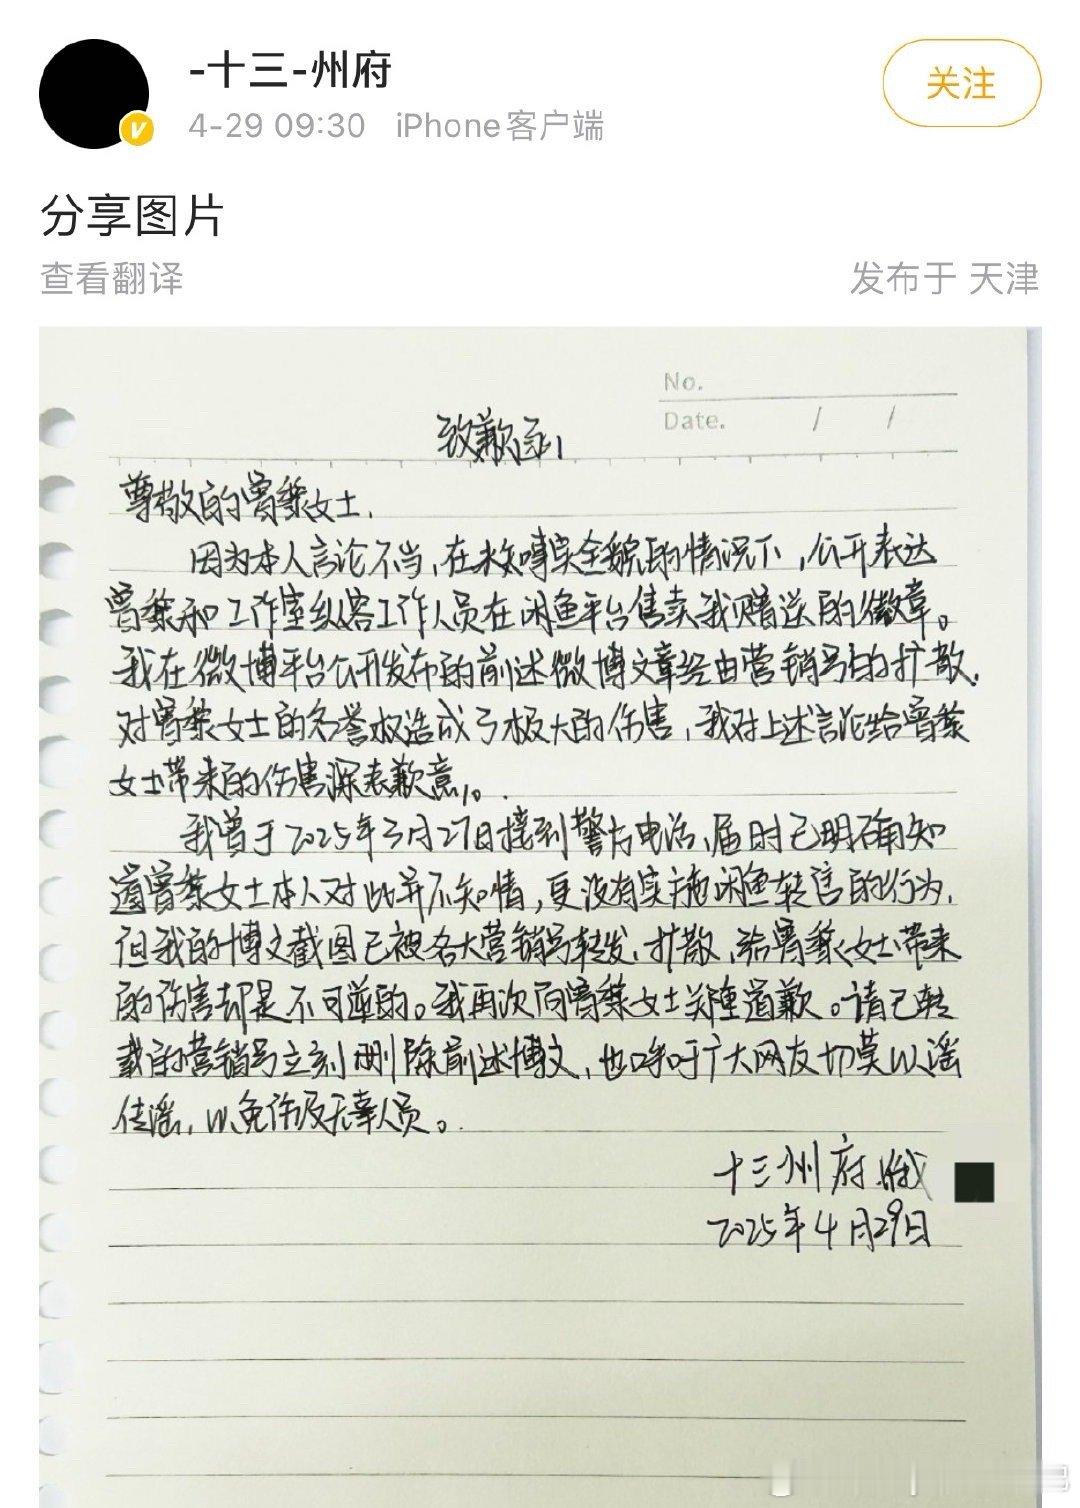 -十三-州府
关注
4-29 09:30 iPhone客户端
分享图片
查看翻译
发布于 天津
No.
Date. / /
致歉函
尊敬的曾黎女士,
因为本人言论不当,在未知事实全貌的情况下,公开表达
曾黎和工作室纵容工作人员在闲鱼平台售卖我赠送的徽章。
我在微博平台公开发布的前述微博文章经由营销号的扩散,
对曾黎女士的名誉权造成了极大的伤害,我对上述言论给曾黎
女士带来的伤害深表歉意。
我曾于2025年3月27日接到警方电话,届时已明确知
道曾黎女士本人对此并不知情,更没有实施闲鱼转卖的行为,
但我的博文截图已被各大营销号转发、扩散,给曾黎女士带来
的伤害却是不可逆的。我再次向曾黎女士郑重道歉。请已转
载的营销号立刻删除前述博文,也呼吁广大网友切莫以谣
传谣,以免伤及无辜人员。
十三州府
2025年4月29日